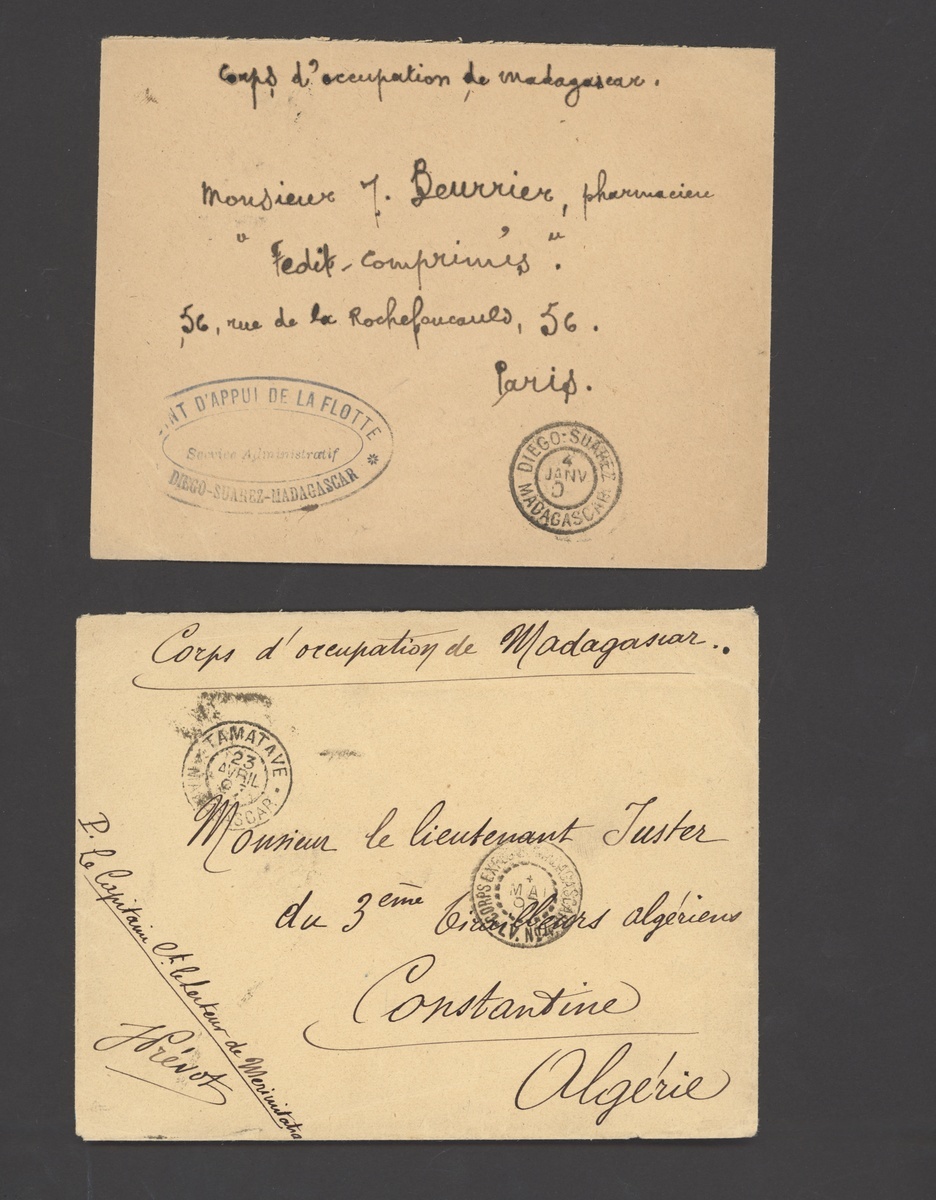 Corps d'occupation de Madagascar.
Monsieur J. Beurrier, pharmacien
" Fedit-Comprimés ".
56, rue de la Rochefoucauld, 56.
Paris.
INT D'APPUI DE LA FLOTTE
Service Administratif
DIEGO-SUAREZ-MADAGASCAR
DIEGO-SUAREZ
4
JANV
0
MADAGASCAR
Corps d'occupation de Madagascar.
TAMATAVE
23
AVRIL
ASCAR
Monsieur le lieutenant Juster
du 3ème tirailleurs algériens
CORPS EXP MADAGASCAR
MAI
Constantine
Algérie
P. Le Capitaine Ct. le Secteur de
Prévot